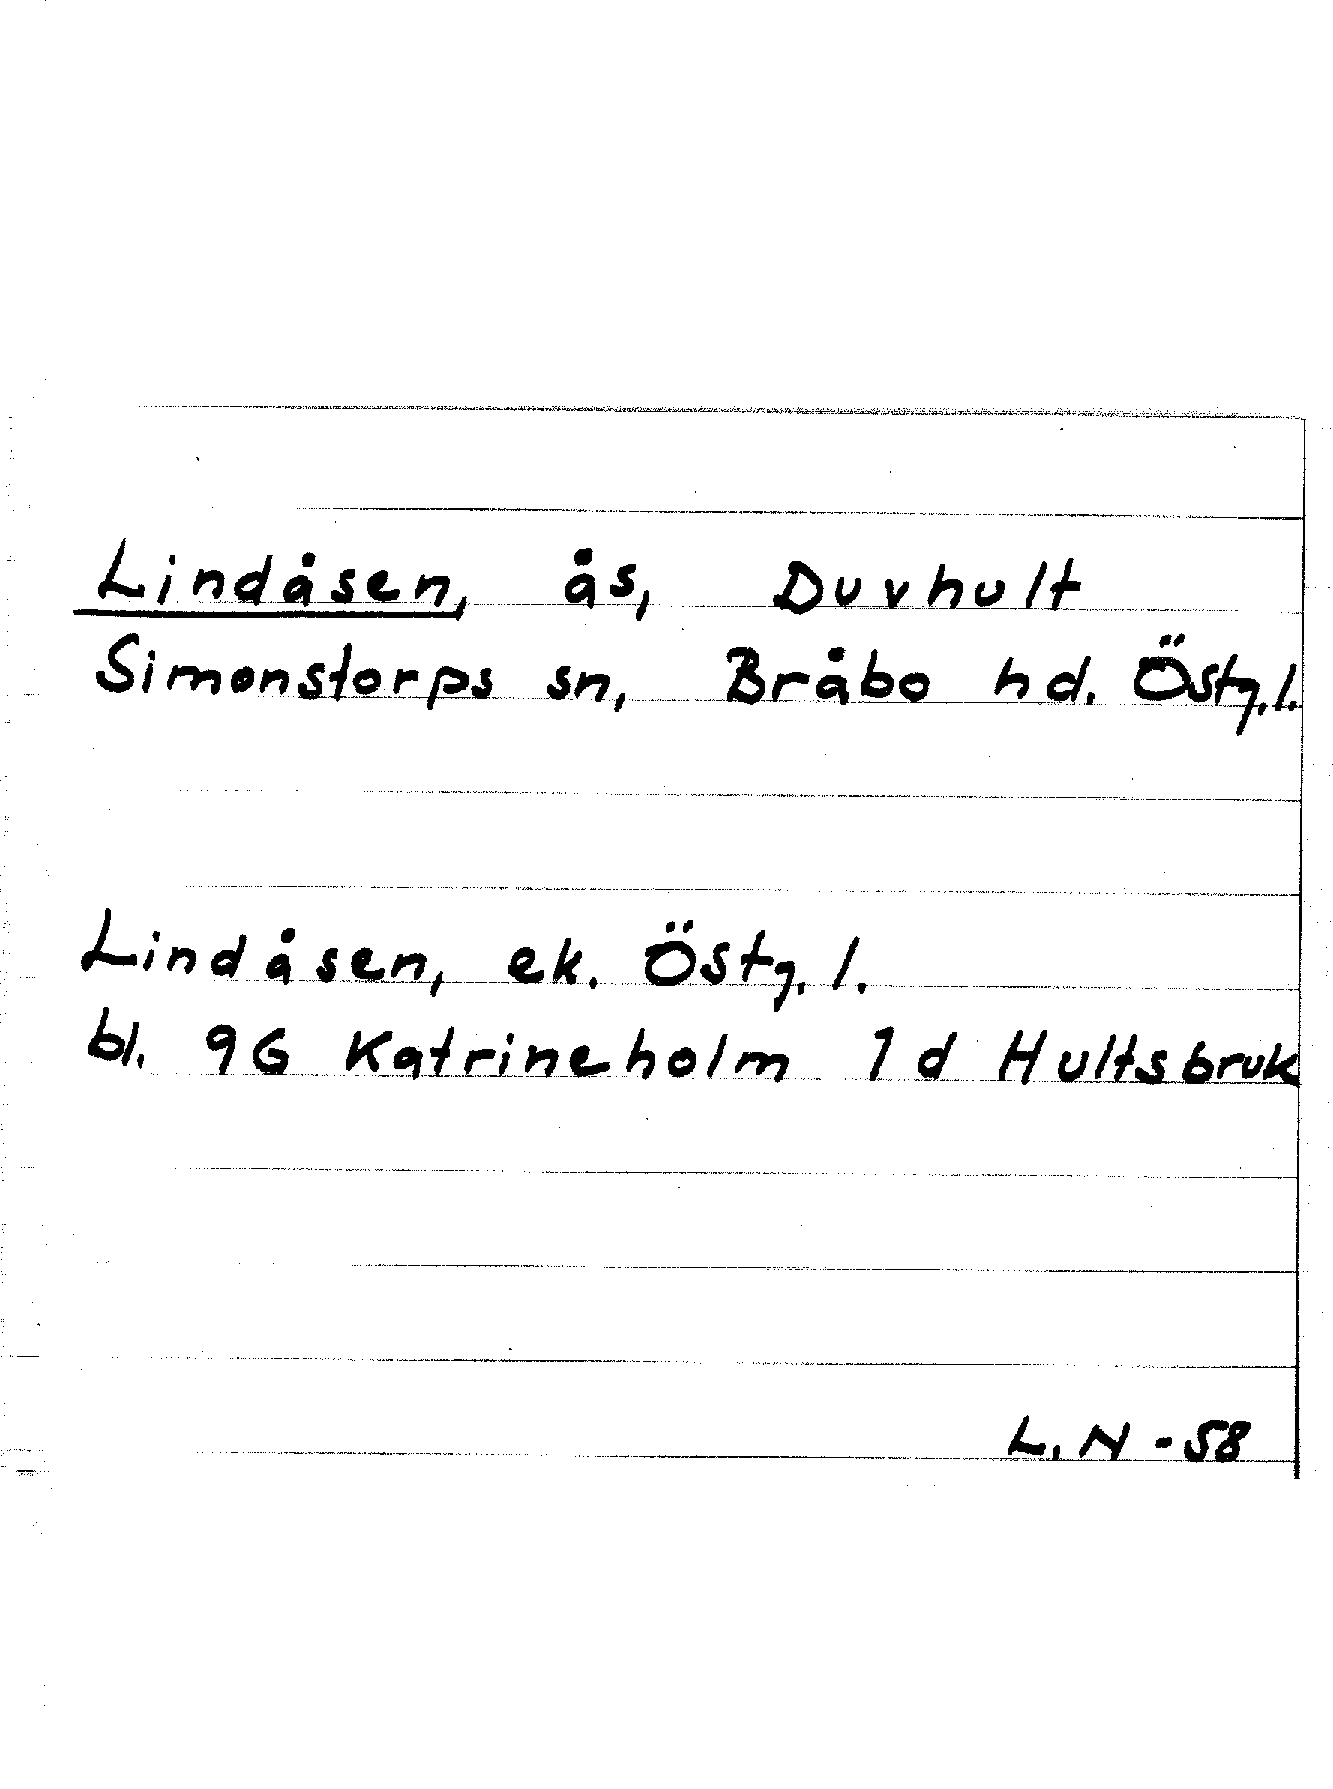 Lindåsen, ås, Duvhult
Simonstorps sn, Bråbo hd. Östg.l.
Lindåsen, ek. Östg.l.
bl. 9G Katrineholm 1d Hultsbruk
L.N -58